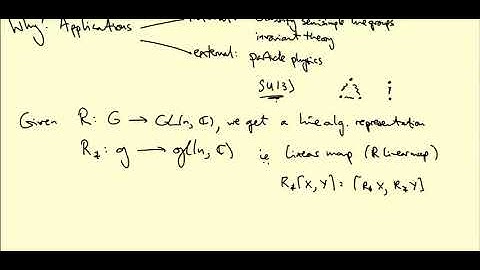 Why? Applications
classify semisimple Lie groups
invariant theory
external: particle physics
SU(3)
Given R: G → GL(n, ℂ), we get a Lie alg. representation
R_*: g → gl(n, ℂ) i.e. linear map (R linear map)
R_*[X, Y] = [R_* X, R_* Y]